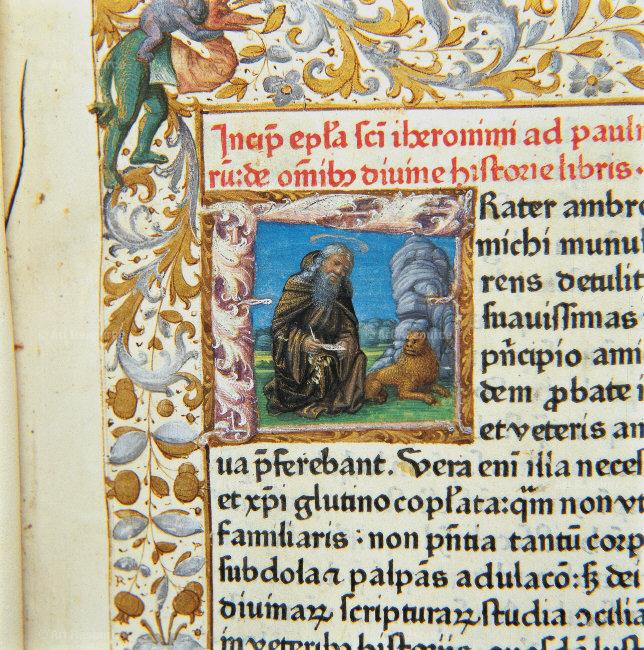 Incip̄ ep̄la sc̄i iheronimi ad pauli
nū: de om̄ibꝰ diuine historie libris.
Rater ambro
michi munu
rens detulit
suauissimas
pn̄cipio ami
dem ꝓbate
et veteris am
ua p̄ferebant. Vera eni illa neces
et xp̄i glutino cop̄lata: qm̄ non vt
familiaris: non pn̄tia tantū corp
subdola ⁊ palpās adulacō: sꝫ dei
diuinaꝝ scripturaꝝ studia ↄcilia